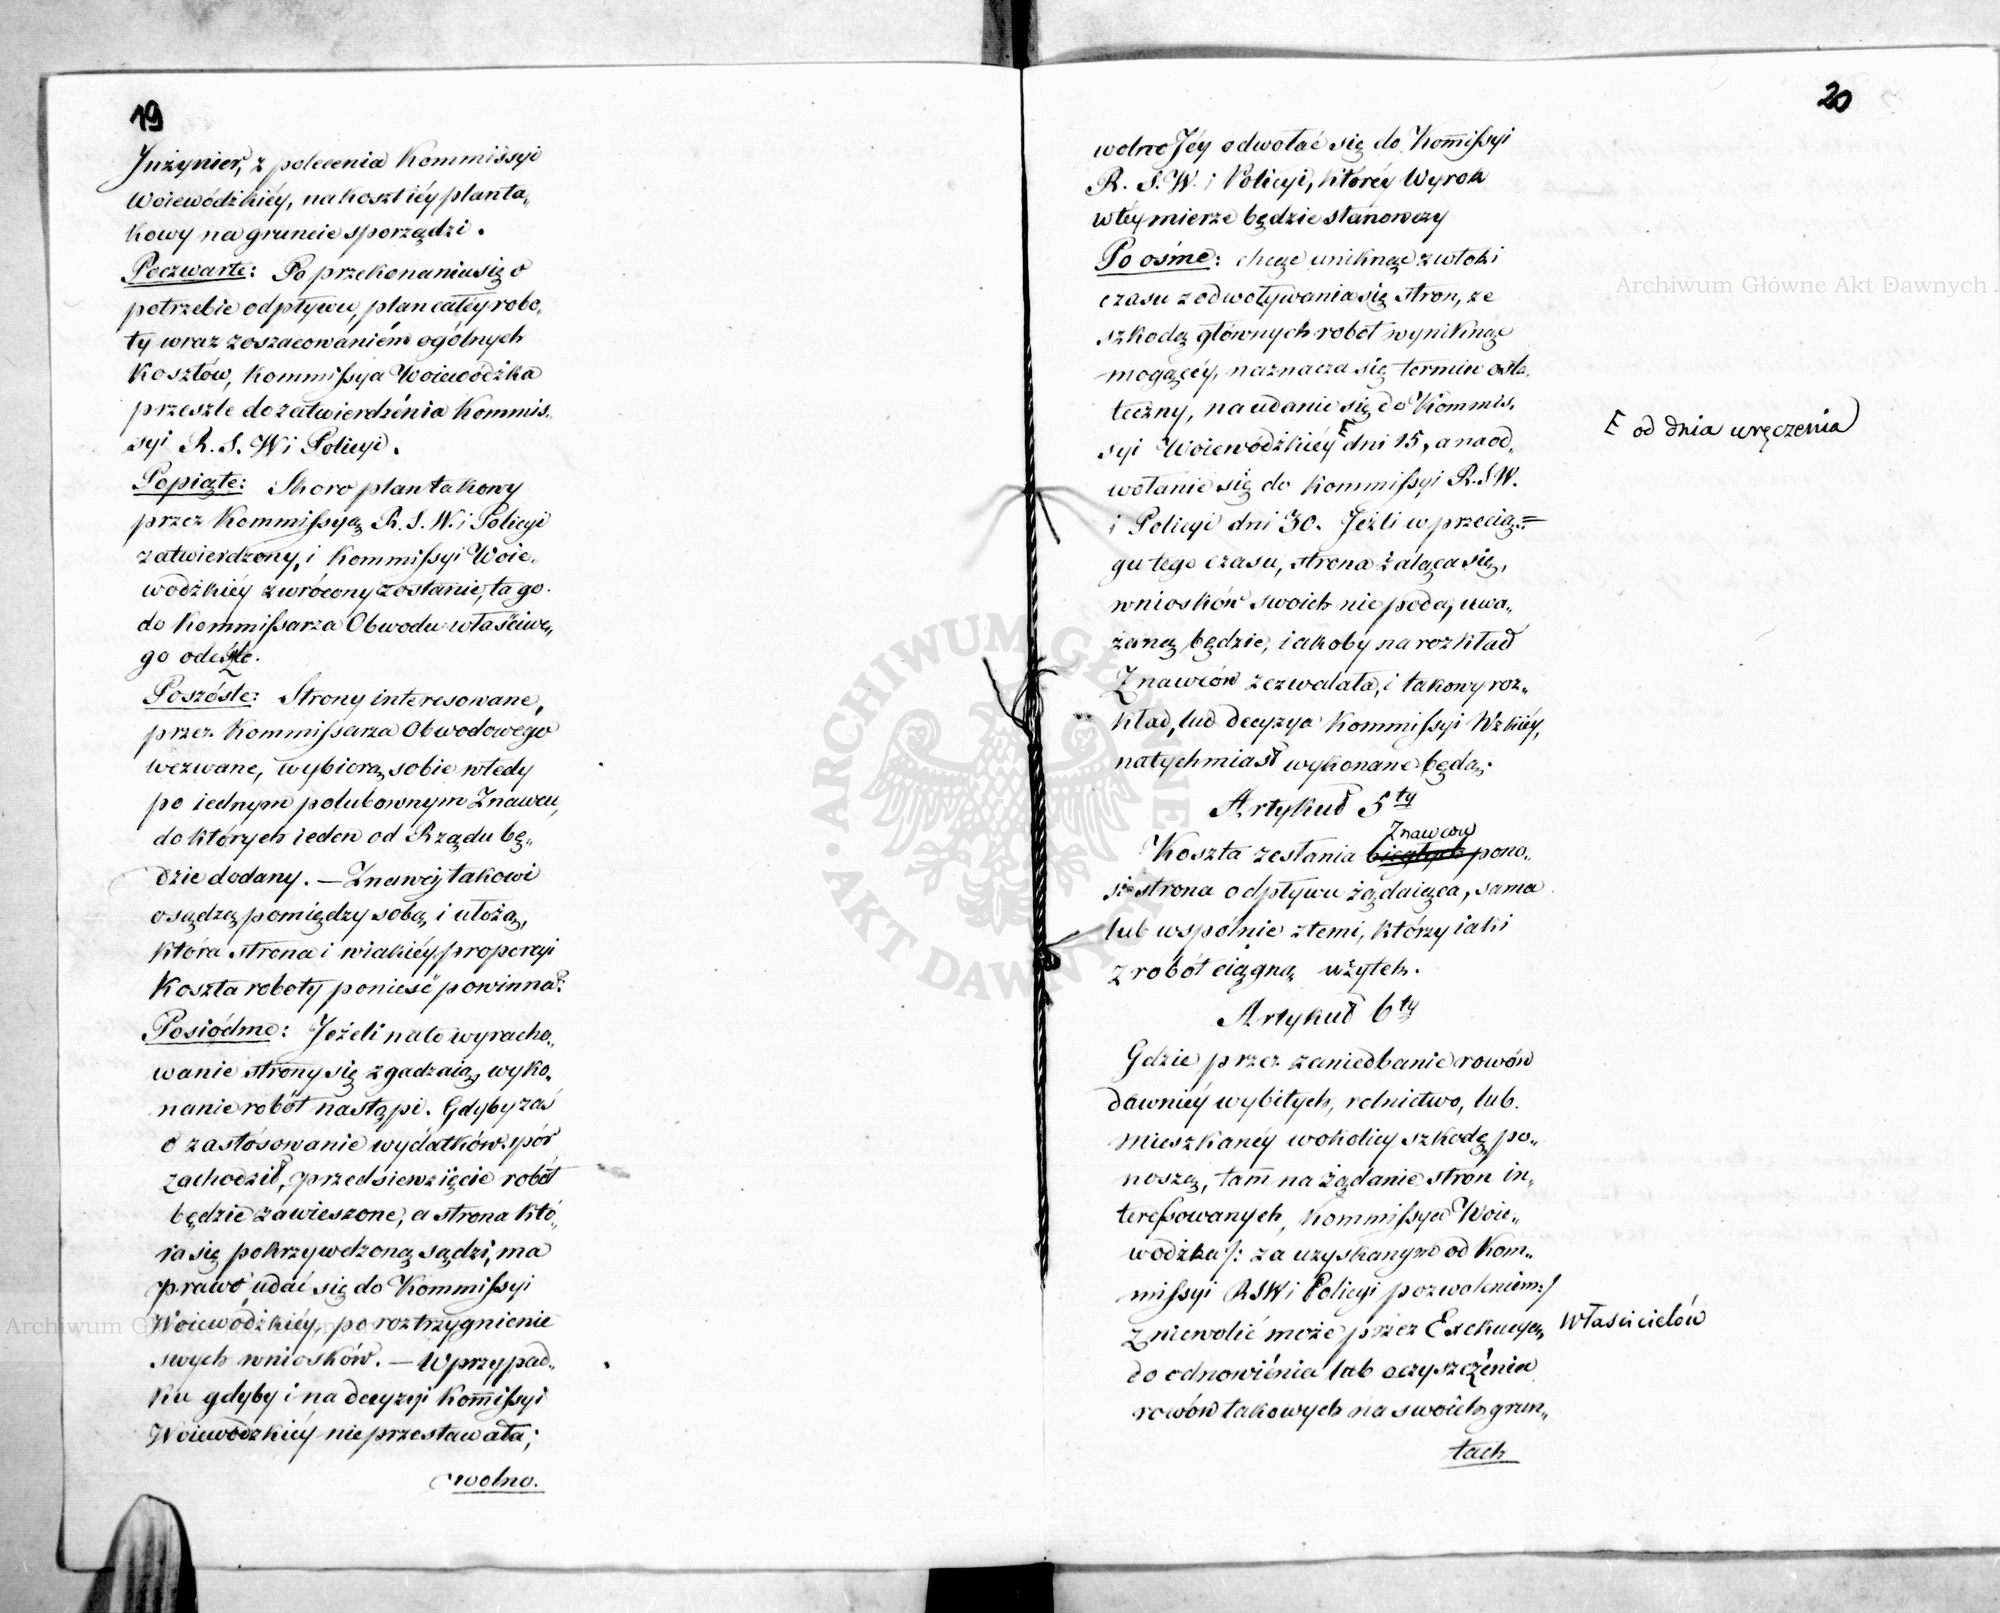 19
Inżynier, z polecenia Kommissyi
Woiewódzkiéy, na koszt iéy planta„
kowy na gruncie sporządzi.
Poczwarte: Po przekonaniu się o
potrzebie odpływu, plan całéy robo„
ty wraz z oszacowaniém ogólnych
Kosztów, Kommissya Woiewódzka
przeszle do zatwierdzénia Kommis„
syi R. S. W i Policyi.
Popiąte: Skoro plan takowy
przez Kommissyą R. S. W. i Policyi
zatwierdzony, i Kommissyi Woie„
wodzkiéy zwrócony zostanie, ta go
do Kommissarza Obwodu właściwe„
go odeśle.
Poszóste: Strony interesowane,
przez Kommissarza Obwodowego
wezwane, wybiorą sobie wtedy
po iednym polubownym Znawcu,
do których ieden od Rządu bę„
dzie dodany. — Znawcy takowi
osądzą pomiędzy sobą i ułożą,
która strona i w iakiéy proporcyi
Koszta roboty ponieść powinna?
Posiódme: Jeżeli na to wyracho„
wanie strony się zgadzaią, wyko„
nanie robót nastąpi. Gdyby zaś
o zastósowanie wydatków spór
zachodził, przedsiewzięcie robót
będzie zawieszone, a strona któ„
ra się pokrzywdzoną sądzi, ma
prawo udać się do Kommissyi
Woiewódzkiéy, po roztrzygnienie
swych wniosków. — W przypad„
ku gdyby i na decyzyi Kom̅issyi
Woiewodzkiéy nie przestawała;
wolno.
20
wolno Jéy odwołać się do Kom̅issyi
R. S. W. i Policyi, któréy Wyrok
w téy mierze będzie stanowczy
Po osme: chcąc uniknąć zwłoki
czasu z odwoływania się stron, ze
szkodą głównych robot wyniknąć
mogącéy, naznacza się termin osta„
teczny, na udanie się do Kommis„
syi Woiewódzkiéy ⁅ dni 15, a na od„
⁅ od dnia wręczenia
wołanie się do Kommissyi R. S W.
i Policyi dni 30. Jeżli w przecią=
gu tego czasu, strona żaląca się,
wniosków swoich nie poda, uwa„
żaną będzie, iakoby na rozkład
Znawców zezwalała, i takowy roz„
kład, lub decyzya Kommissyi Wzkiéy,
natychmiast wykonane będą.
Artykuł 5ty
Znawców
Koszta zesłania biegłych pono„
si strona odpływu żądaiąca, sama
lub wspólnie z temi, którzy iaki
z robót ciągną użytek.
Artykuł 6ty
Gdzie przez zaniedbanie rowów
dawniéy wybitych, rolnictwo, lub
Mieszkańcy w okolicy szkodę po„
noszą, tam na żądanie stron in„
teressowanych, Kommissya Woie„
wodzka /: za uzyskanym od Kom„
missyi RSW i Policyi pozwoleniem:/
zniewolić może przez Exekucyą, Właścicielów
do odnowiénia lub oczyszczénia
rowów takowych na swoich grun„
tach
Archiwum Główne Akt Dawnych
ARCHIWUM GŁÓWNE AKT DAWNYCH
Archiwum Główne Akt Dawnych